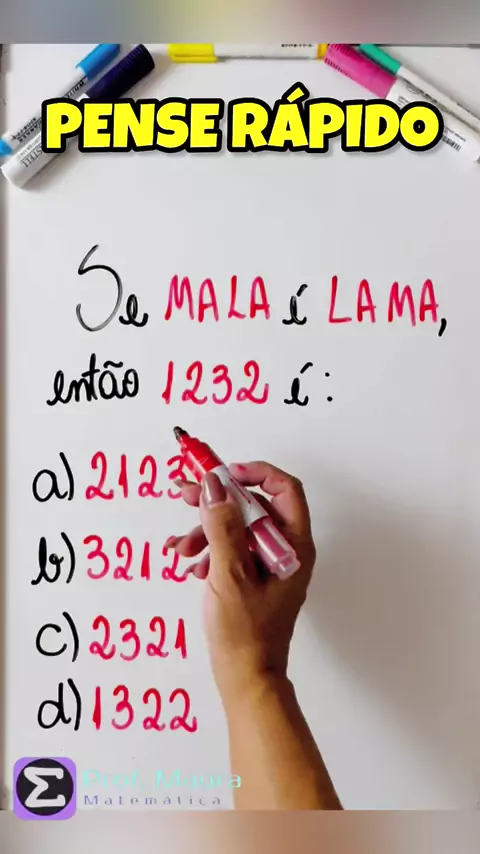 PENSE RÁPIDO
Se MALA é LAMA,
então 1232 é:
a) 2123
b) 3212
c) 2321
d) 1322
Prof. Maura
Matemática